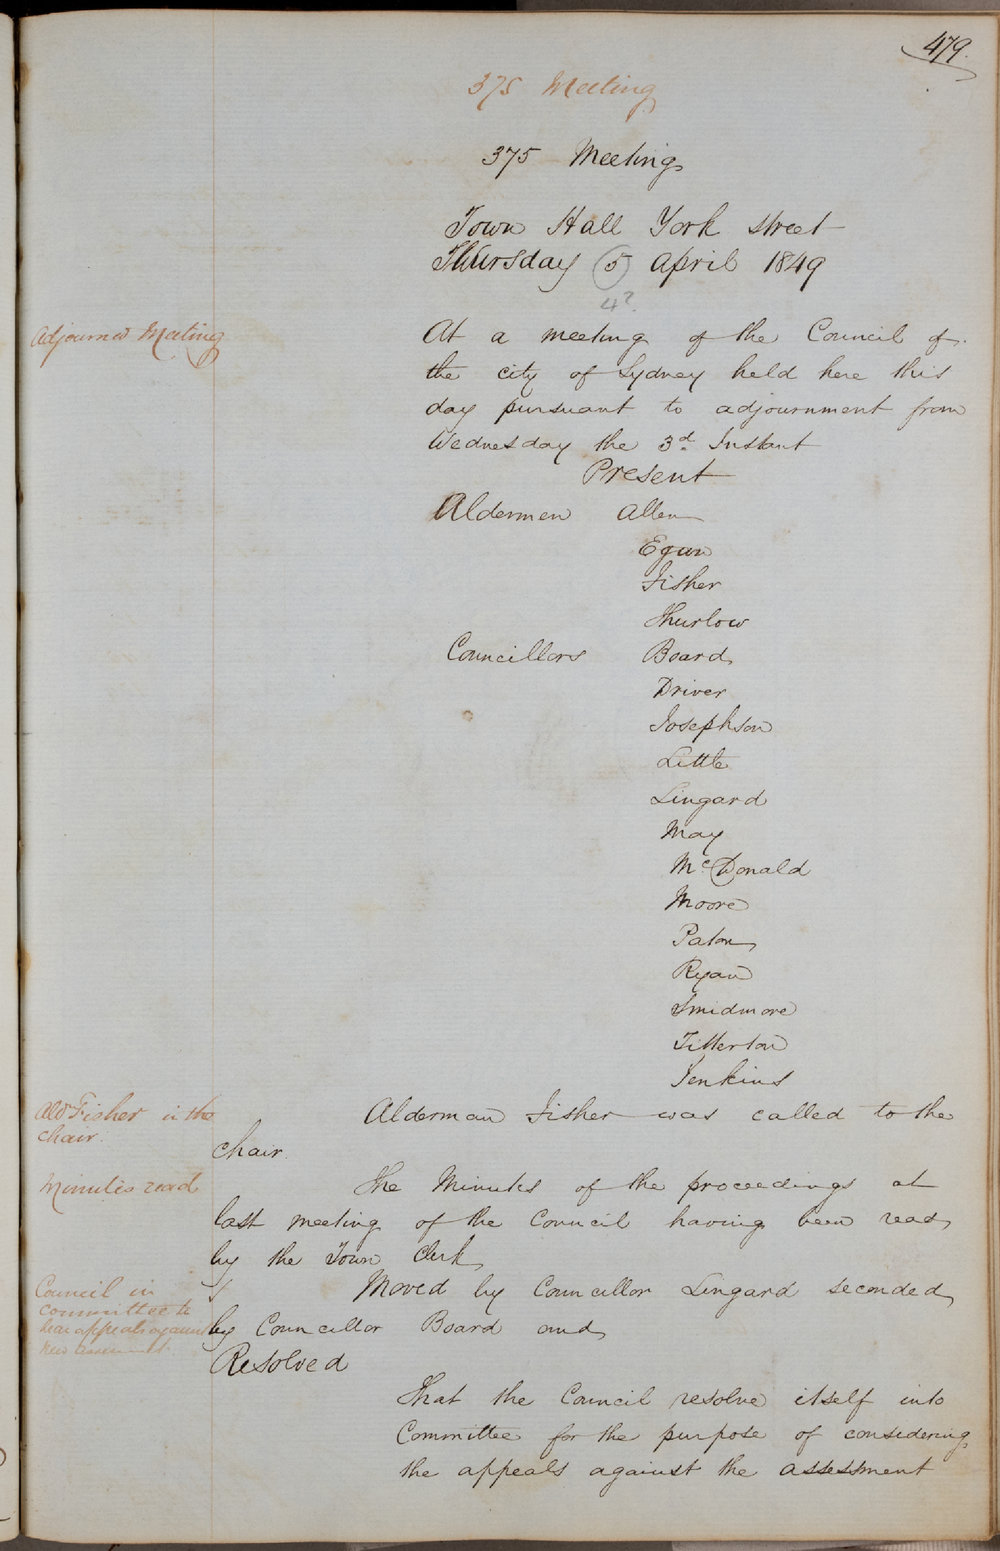 479.
375 Meeting
375 Meeting
Town Hall York street
Thursday 5 April 1849
4?
Adjourned Meeting
At a meeting of the Council of
the city of Sydney held here this
day pursuant to adjournment from
Wednesday the 3d. Instant
Present
Aldermen Allen
Egan
Fisher
Thurlow
Councillors Board
Driver
Josephson
Little
Lingard
May
McDonald
Moore
Paton
Ryan
Smidmore
Titterton
Jenkins
Ald Fisher in the
chair.
Alderman Fisher was called to the
chair.
Minutes read
The Minutes of the proceedings at
last meeting of the Council having been read
by the Town Clerk
Council in
committee to
hear appeals against
new assessment
Moved by Councillor Lingard seconded
by Councillor Board and
Resolved
That the Council resolve itself into
Committee for the purpose of considering
the appeals against the assessment